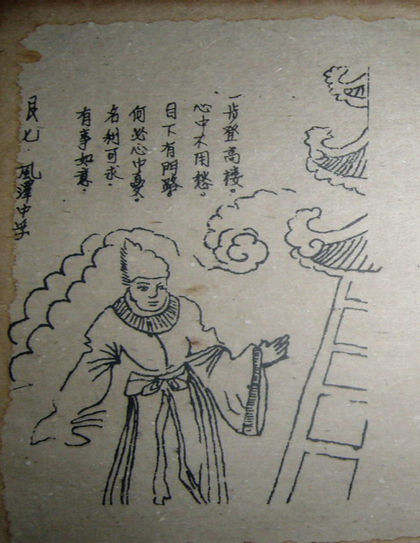 一步登高楼。
心中不用愁。
目下有門路。
何必心中憂。
名利可求。
有事如意。
艮七 風澤中孚